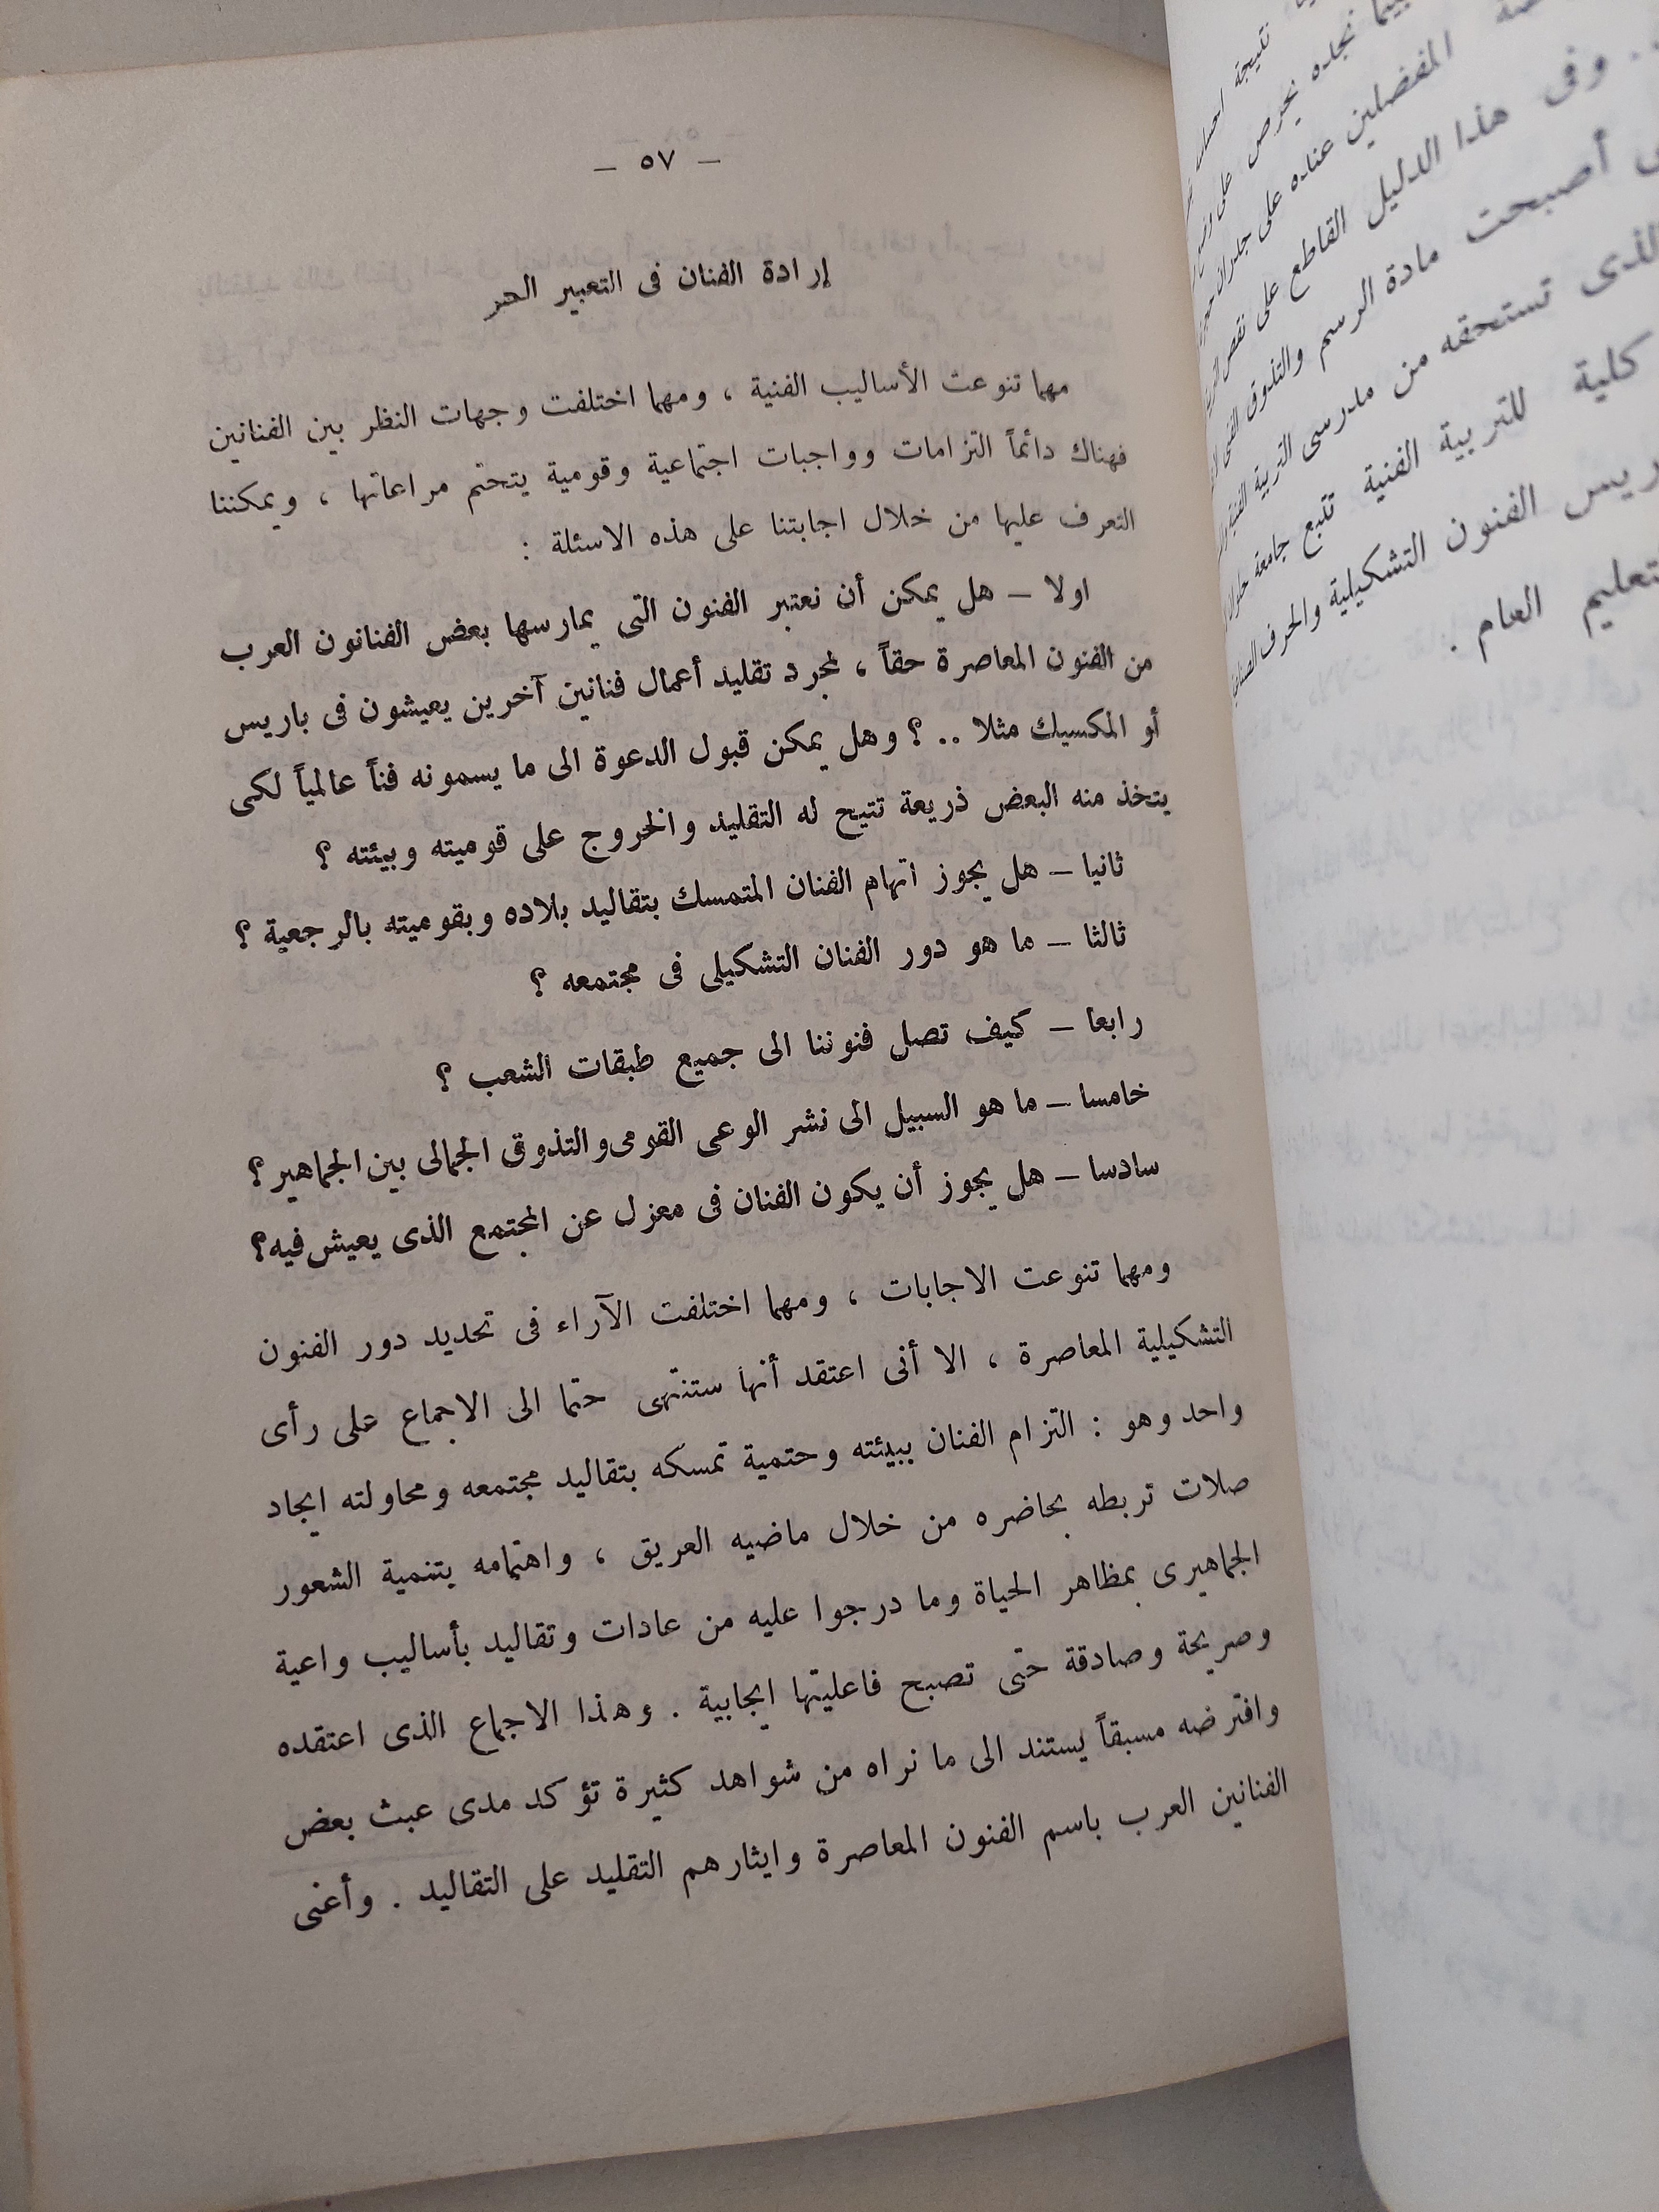 – ٥٧ –
إرادة الفنان فى التعبير الحر
مهما تنوعت الأساليب الفنية ، ومهما اختلفت وجهات النظر بين الفنانين
فهناك دائماً التزامات وواجبات اجتماعية وقومية يتحتم مراعاتها ، ويمكننا
التعرف عليها من خلال اجابتنا على هذه الاسئلة :
اولا – هل يمكن أن نعتبر الفنون التى يمارسها بعض الفنانون العرب
من الفنون المعاصرة حقاً ، لمجرد تقليد أعمال فنانين آخرين يعيشون فى باريس
أو المكسيك مثلا .. ؟ وهل يمكن قبول الدعوة الى ما يسمونه فناً عالمياً لكى
يتخذ منه البعض ذريعة تتيح له التقليد والخروج على قوميته وبيئته ؟
ثانيا – هل يجوز اتهام الفنان المتمسك بتقاليد بلاده وبقوميته بالرجعية ؟
ثالثا – ما هو دور الفنان التشكيلى فى مجتمعه ؟
رابعا – كيف تصل فنوننا الى جميع طبقات الشعب ؟
خامسا – ما هو السبيل الى نشر الوعى القومى والتذوق الجمالى بين الجماهير ؟
سادسا – هل يجوز أن يكون الفنان فى معزل عن المجتمع الذى يعيش فيه ؟
ومهما تنوعت الاجابات ، ومهما اختلفت الآراء فى تحديد دور الفنون
التشكيلية المعاصرة ، الا أنى اعتقد أنها ستنتهى حتما الى الاجماع على رأى
واحد وهو : التزام الفنان ببيئته وحتمية تمسكه بتقاليد مجتمعه ومحاولته ايجاد
صلات تربطه بحاضره من خلال ماضيه العريق ، واهتمامه بتنمية الشعور
الجماهيرى بمظاهر الحياة وما درجوا عليه من عادات وتقاليد بأساليب واعية
وصريحة وصادقة حتى تصبح فاعليتها ايجابية . وهذا الاجماع الذى اعتقده
وافترضه مسبقاً يستند الى ما نراه من شواهد كثيرة تؤكد مدى عبث بعض
الفنانين العرب باسم الفنون المعاصرة وايثارهم التقليد على التقاليد . وأعنى
نتيجة
نجده يحرص على
المفضلين عناده على جدران
وفى هذا الدليل القاطع على نقص
أصبحت مادة الرسم والتذوق الفنى
تستحقه من مدرسى التربية الفنية
كلية للتربية الفنية تتبع جامعة حلوان
الفنون التشكيلية والحرف
العام .